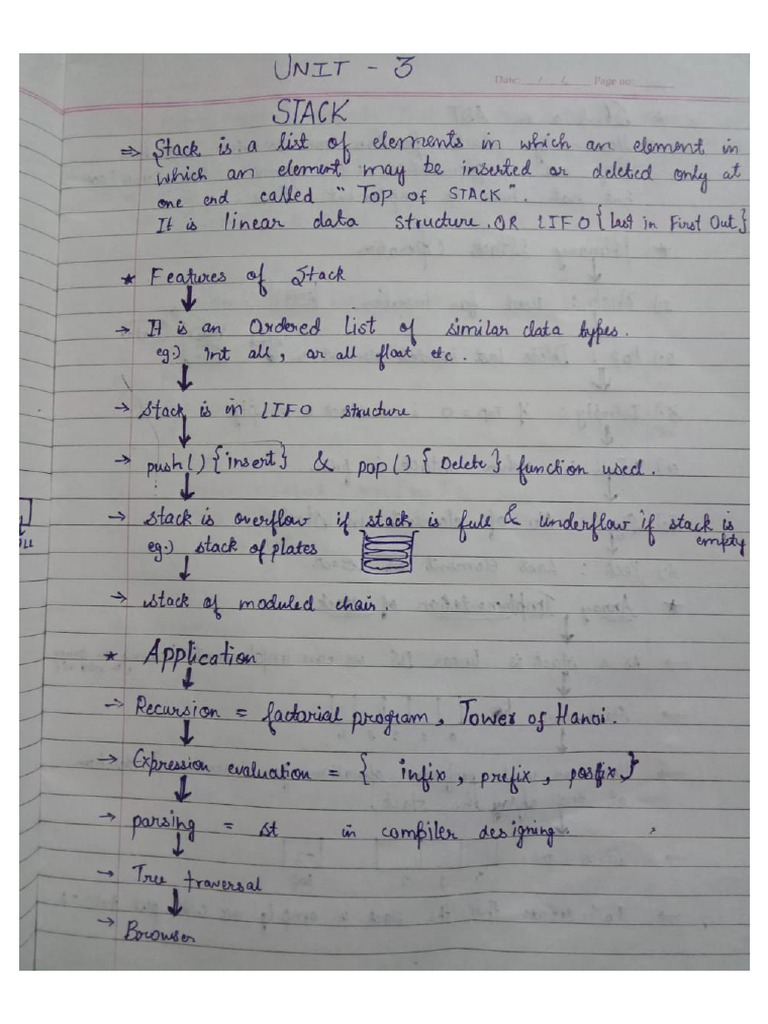 UNIT - 3
Date: / / Page no:
STACK
⇒ Stack is a list of elements in which an element in
which an element may be inserted or deleted only at
one end called "TOP of STACK".
It is linear data structure. OR LIFO {Last in First Out}
* Features of Stack
→ It is an Ordered List of similar data types.
eg:) Int all, or all float etc.
→ Stack is in LIFO structure
→ push() {insert} & pop() {Delete} function used.
→ Stack is overflow if stack is full & underflow if stack is
empty
eg:) stack of plates
→ stack of moduled chair.
* Application
→ Recursion = factorial program, Tower of Hanoi.
→ Expression evaluation = { infix, prefix, posfix}
→ parsing = It in compiler designing.
→ Tree traversal
→ Browser